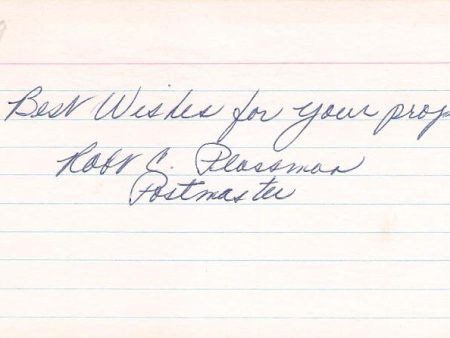 Best Wishes for your prop
Robt C. Plassman
Postmaster